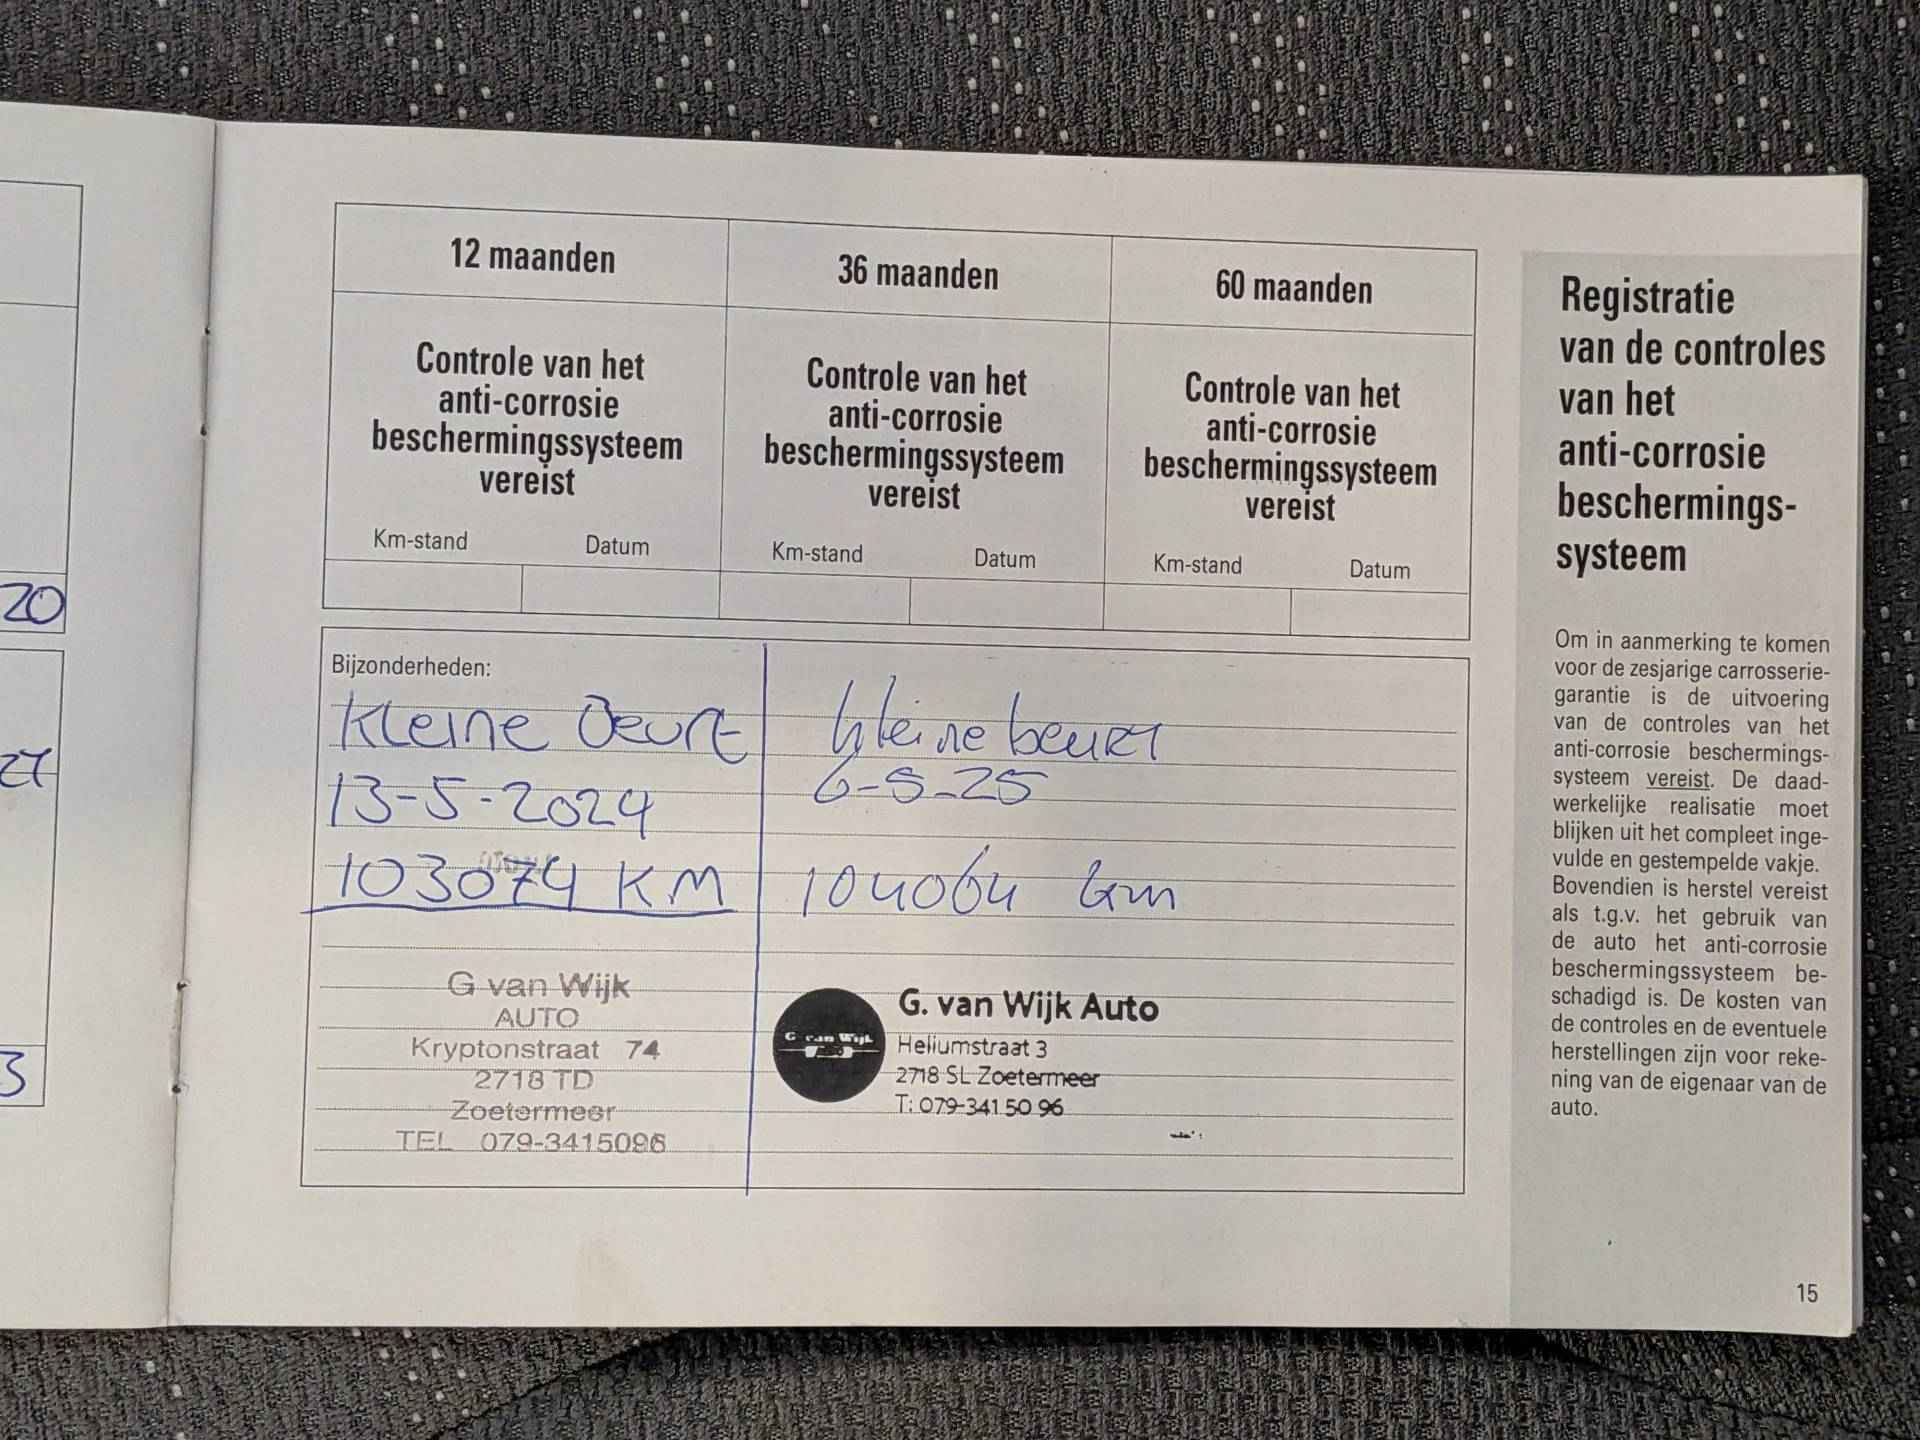 20
27
3
12 maanden
Controle van het
anti-corrosie
beschermingssysteem
vereist
Km-stand Datum
36 maanden
Controle van het
anti-corrosie
beschermingssysteem
vereist
Km-stand Datum
60 maanden
Controle van het
anti-corrosie
beschermingssysteem
vereist
Km-stand Datum
Bijzonderheden:
Kleine Beurt
13-5-2024
103074 KM
G van Wijk
AUTO
Kryptonstraat 74
2718 TD
Zoetermeer
TEL 079-3415096
kleine beurt
6-5-25
104064 km
G. van Wijk
G. van Wijk Auto
Heliumstraat 3
2718 SL Zoetermeer
T: 079-341 50 96
Registratie
van de controles
van het
anti-corrosie
beschermings-
systeem
Om in aanmerking te komen
voor de zesjarige carrosserie-
garantie is de uitvoering
van de controles van het
anti-corrosie beschermings-
systeem vereist. De daad-
werkelijke realisatie moet
blijken uit het compleet inge-
vulde en gestempelde vakje.
Bovendien is herstel vereist
als t.g.v. het gebruik van
de auto het anti-corrosie
beschermingssysteem be-
schadigd is. De kosten van
de controles en de eventuele
herstellingen zijn voor reke-
ning van de eigenaar van de
auto.
15